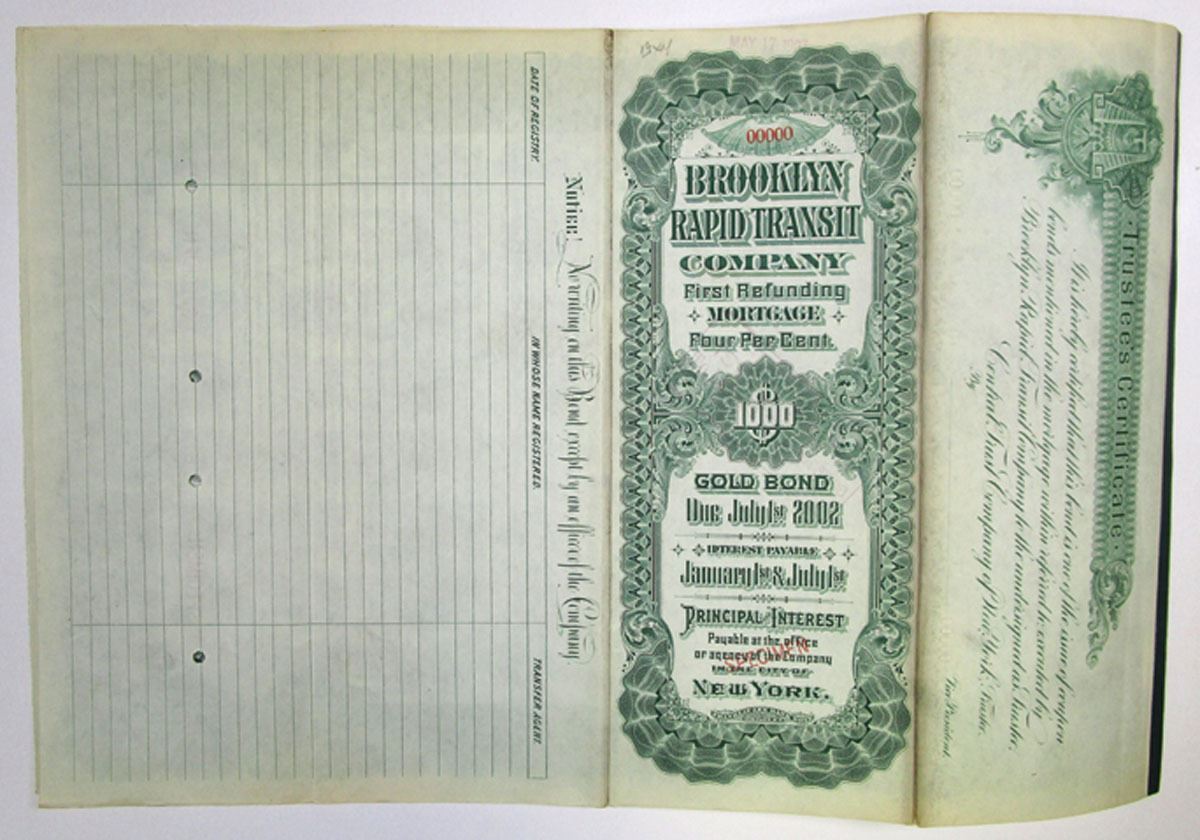 DATE OF REGISTRY.
IN WHOSE NAME REGISTERED.
TRANSFER AGENT.
Notice! No writing on this Bond except by an officer of the Company.
MAY 17
00000
BROOKLYN
RAPID TRANSIT
COMPANY
First Refunding
MORTGAGE
Four Per Cent.
$1000
GOLD BOND
Due July 1st 2002
INTEREST PAYABLE
January 1st & July 1st
PRINCIPAL INTEREST
Payable at the office
or agency of the Company
SPECIMEN
IN THE CITY OF
NEW YORK.
Trustee's Certificate.
It is hereby certified that this bond is one of the issue of coupon
bonds mentioned in the mortgage within referred to executed by
Brooklyn Rapid Transit Company to the undersigned as Trustee,
Central Trust Company of New York, Trustee.
By
Vice President.